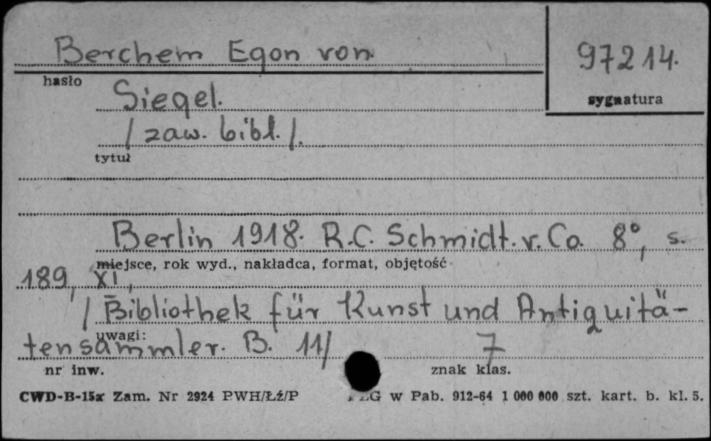 Berchem Egon von
97214.
hasło
sygnatura
Siegel.
/ zaw. bibl. /.
tytuł
Berlin 1918. R.C. Schmidt. v. Co. 8°, s.
miejsce, rok wyd., nakładca, format, objętość
189, XI,
/ Bibliothek für Kunst und Antiquitä-
uwagi:
tensammler. B. 11/ 7
nr inw. znak klas.
CWD-B-15x Zam. Nr 2924 PWH/Łź/P w Pab. 912-64 1 000 000 szt. kart. b. kl. 5.